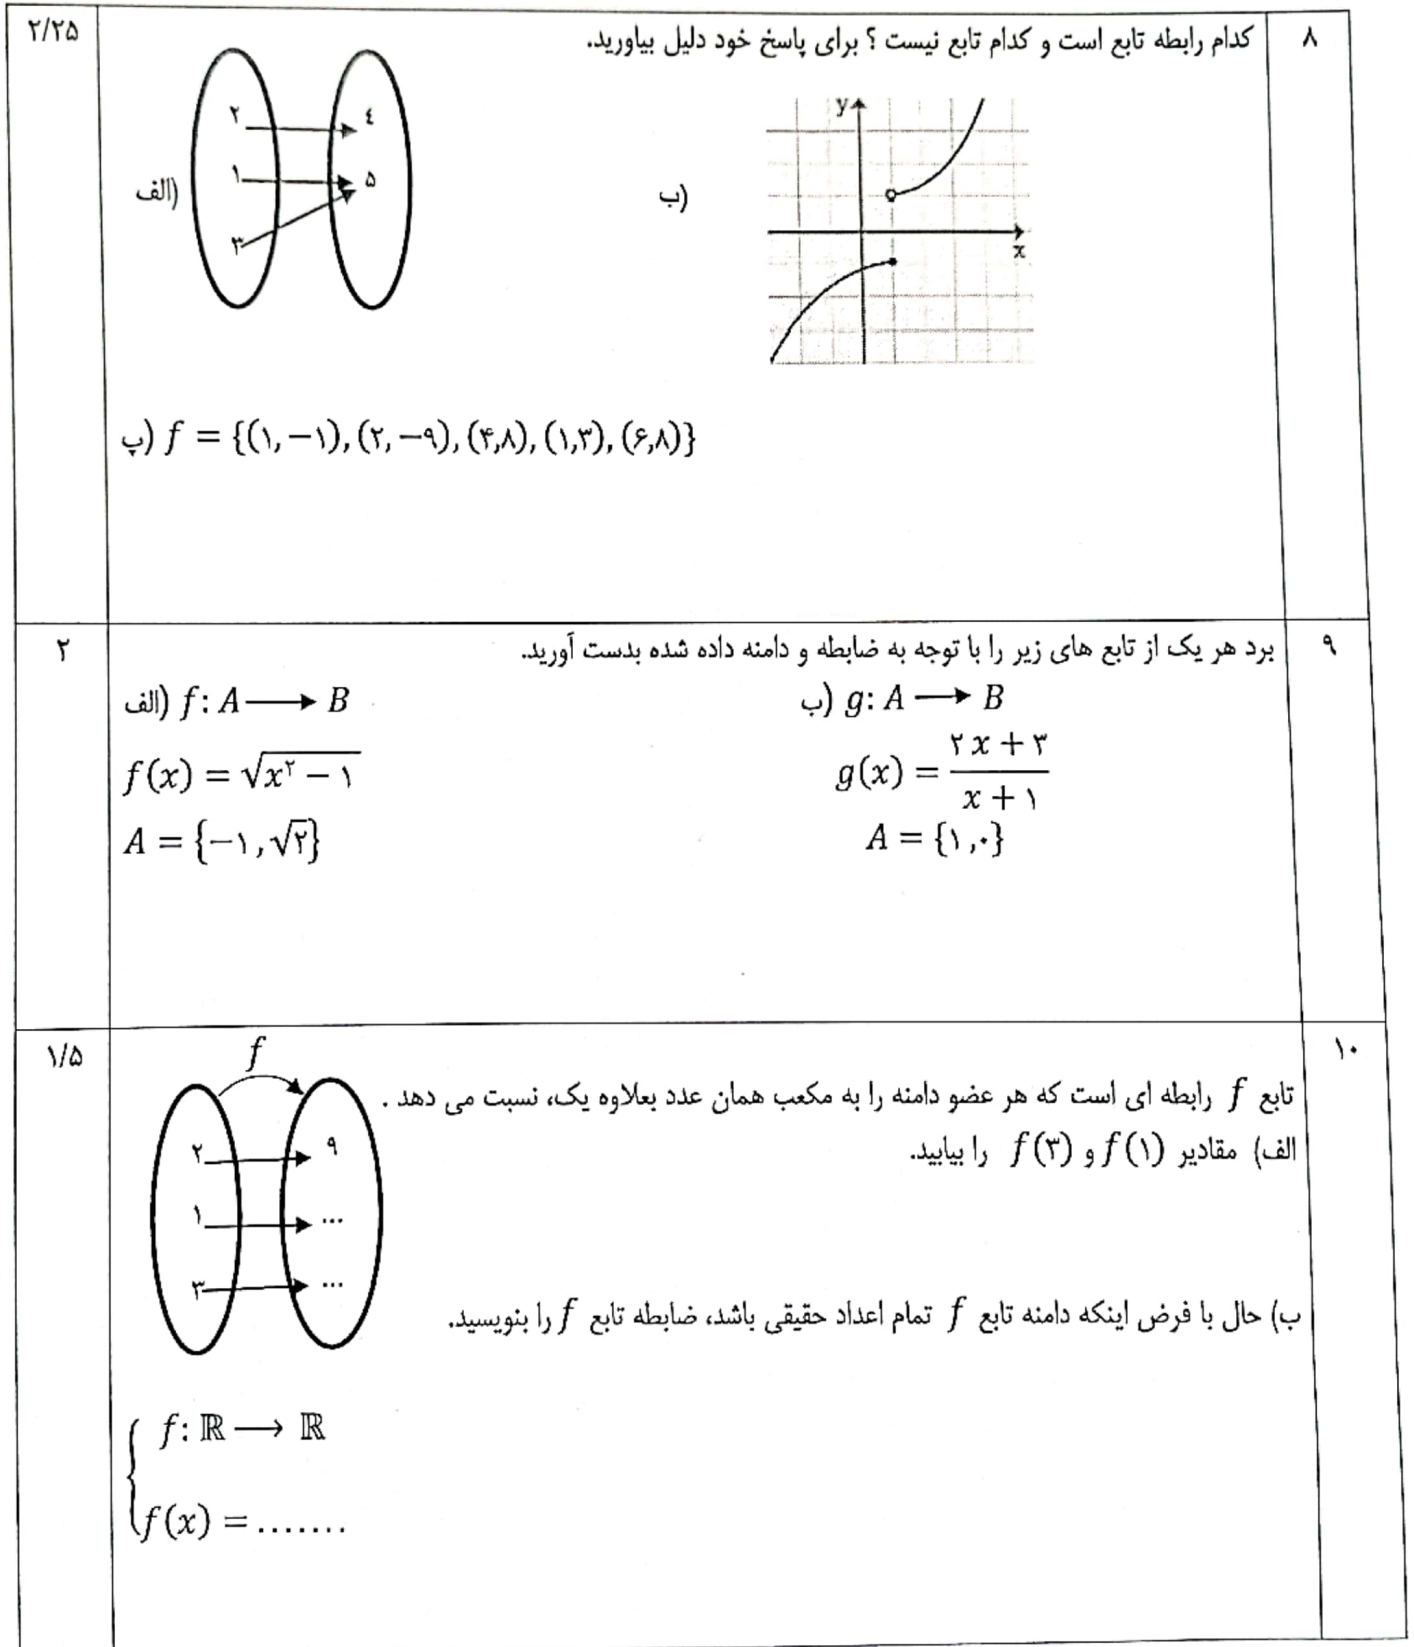 ۸
کدام رابطه تابع است و کدام تابع نیست ؟ برای پاسخ خود دلیل بیاورید.
۲/۲۵
الف)
۲
۱
۳
٤
۵
ب)
y
x
پ) f = {(۱,−۱),(۲,−۹),(۴,۸),(۱,۳),(۶,۸)}
۹
برد هر یک از تابع های زیر را با توجه به ضابطه و دامنه داده شده بدست آورید.
۲
الف) f: A ⟶ B
f(x) = √(x^۲ − ۱)
A = {−۱, √۲}
ب) g: A ⟶ B
g(x) = (۲x + ۳)/(x + ۱)
A = {۱,۰}
۱۰
تابع f رابطه ای است که هر عضو دامنه را به مکعب همان عدد بعلاوه یک، نسبت می دهد .
الف) مقادیر f(۱) و f(۳) را بیابید.
ب) حال با فرض اینکه دامنه تابع f تمام اعداد حقیقی باشد، ضابطه تابع f را بنویسید.
۱/۵
f
۲
۱
۳
۹
...
...
f: ℝ ⟶ ℝ
f(x) = .......